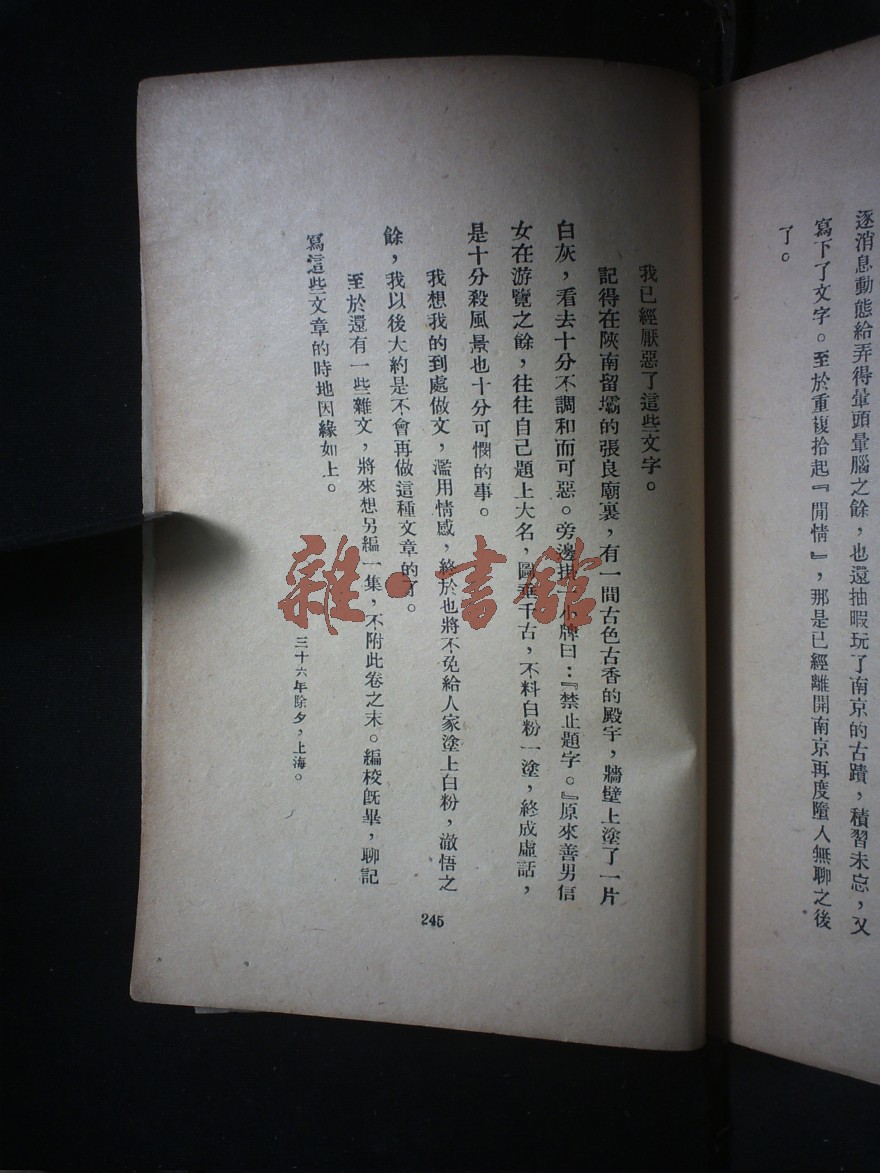 逐消息動態給弄得暈頭暈腦之餘，也還抽暇玩了南京的古蹟，積習未忘，又
寫下了文字。至於重複拾起『閒情』，那是已經離開南京再度墮入無聊之後
了。
我已經厭惡了這些文字。
記得在陝南留壩的張良廟裏，有一間古色古香的殿宇，牆壁上塗了一片
白灰，看去十分不調和而可惡。旁邊掛一小牌曰：『禁止題字。』原來善男信
女在游覽之餘，往往自己題上大名，圖垂千古，不料白粉一塗，終成虛話，
是十分殺風景也十分可憫的事。
我想我的到處做文，濫用情感，終於也將不免給人家塗上白粉，澈悟之
餘，我以後大約是不會再做這種文章的了。
至於還有一些雜文，將來想另編一集，不附此卷之末。編校旣畢，聊記
寫這些文章的時地因緣如上。
三十六年除夕，上海。
245
雜·書館